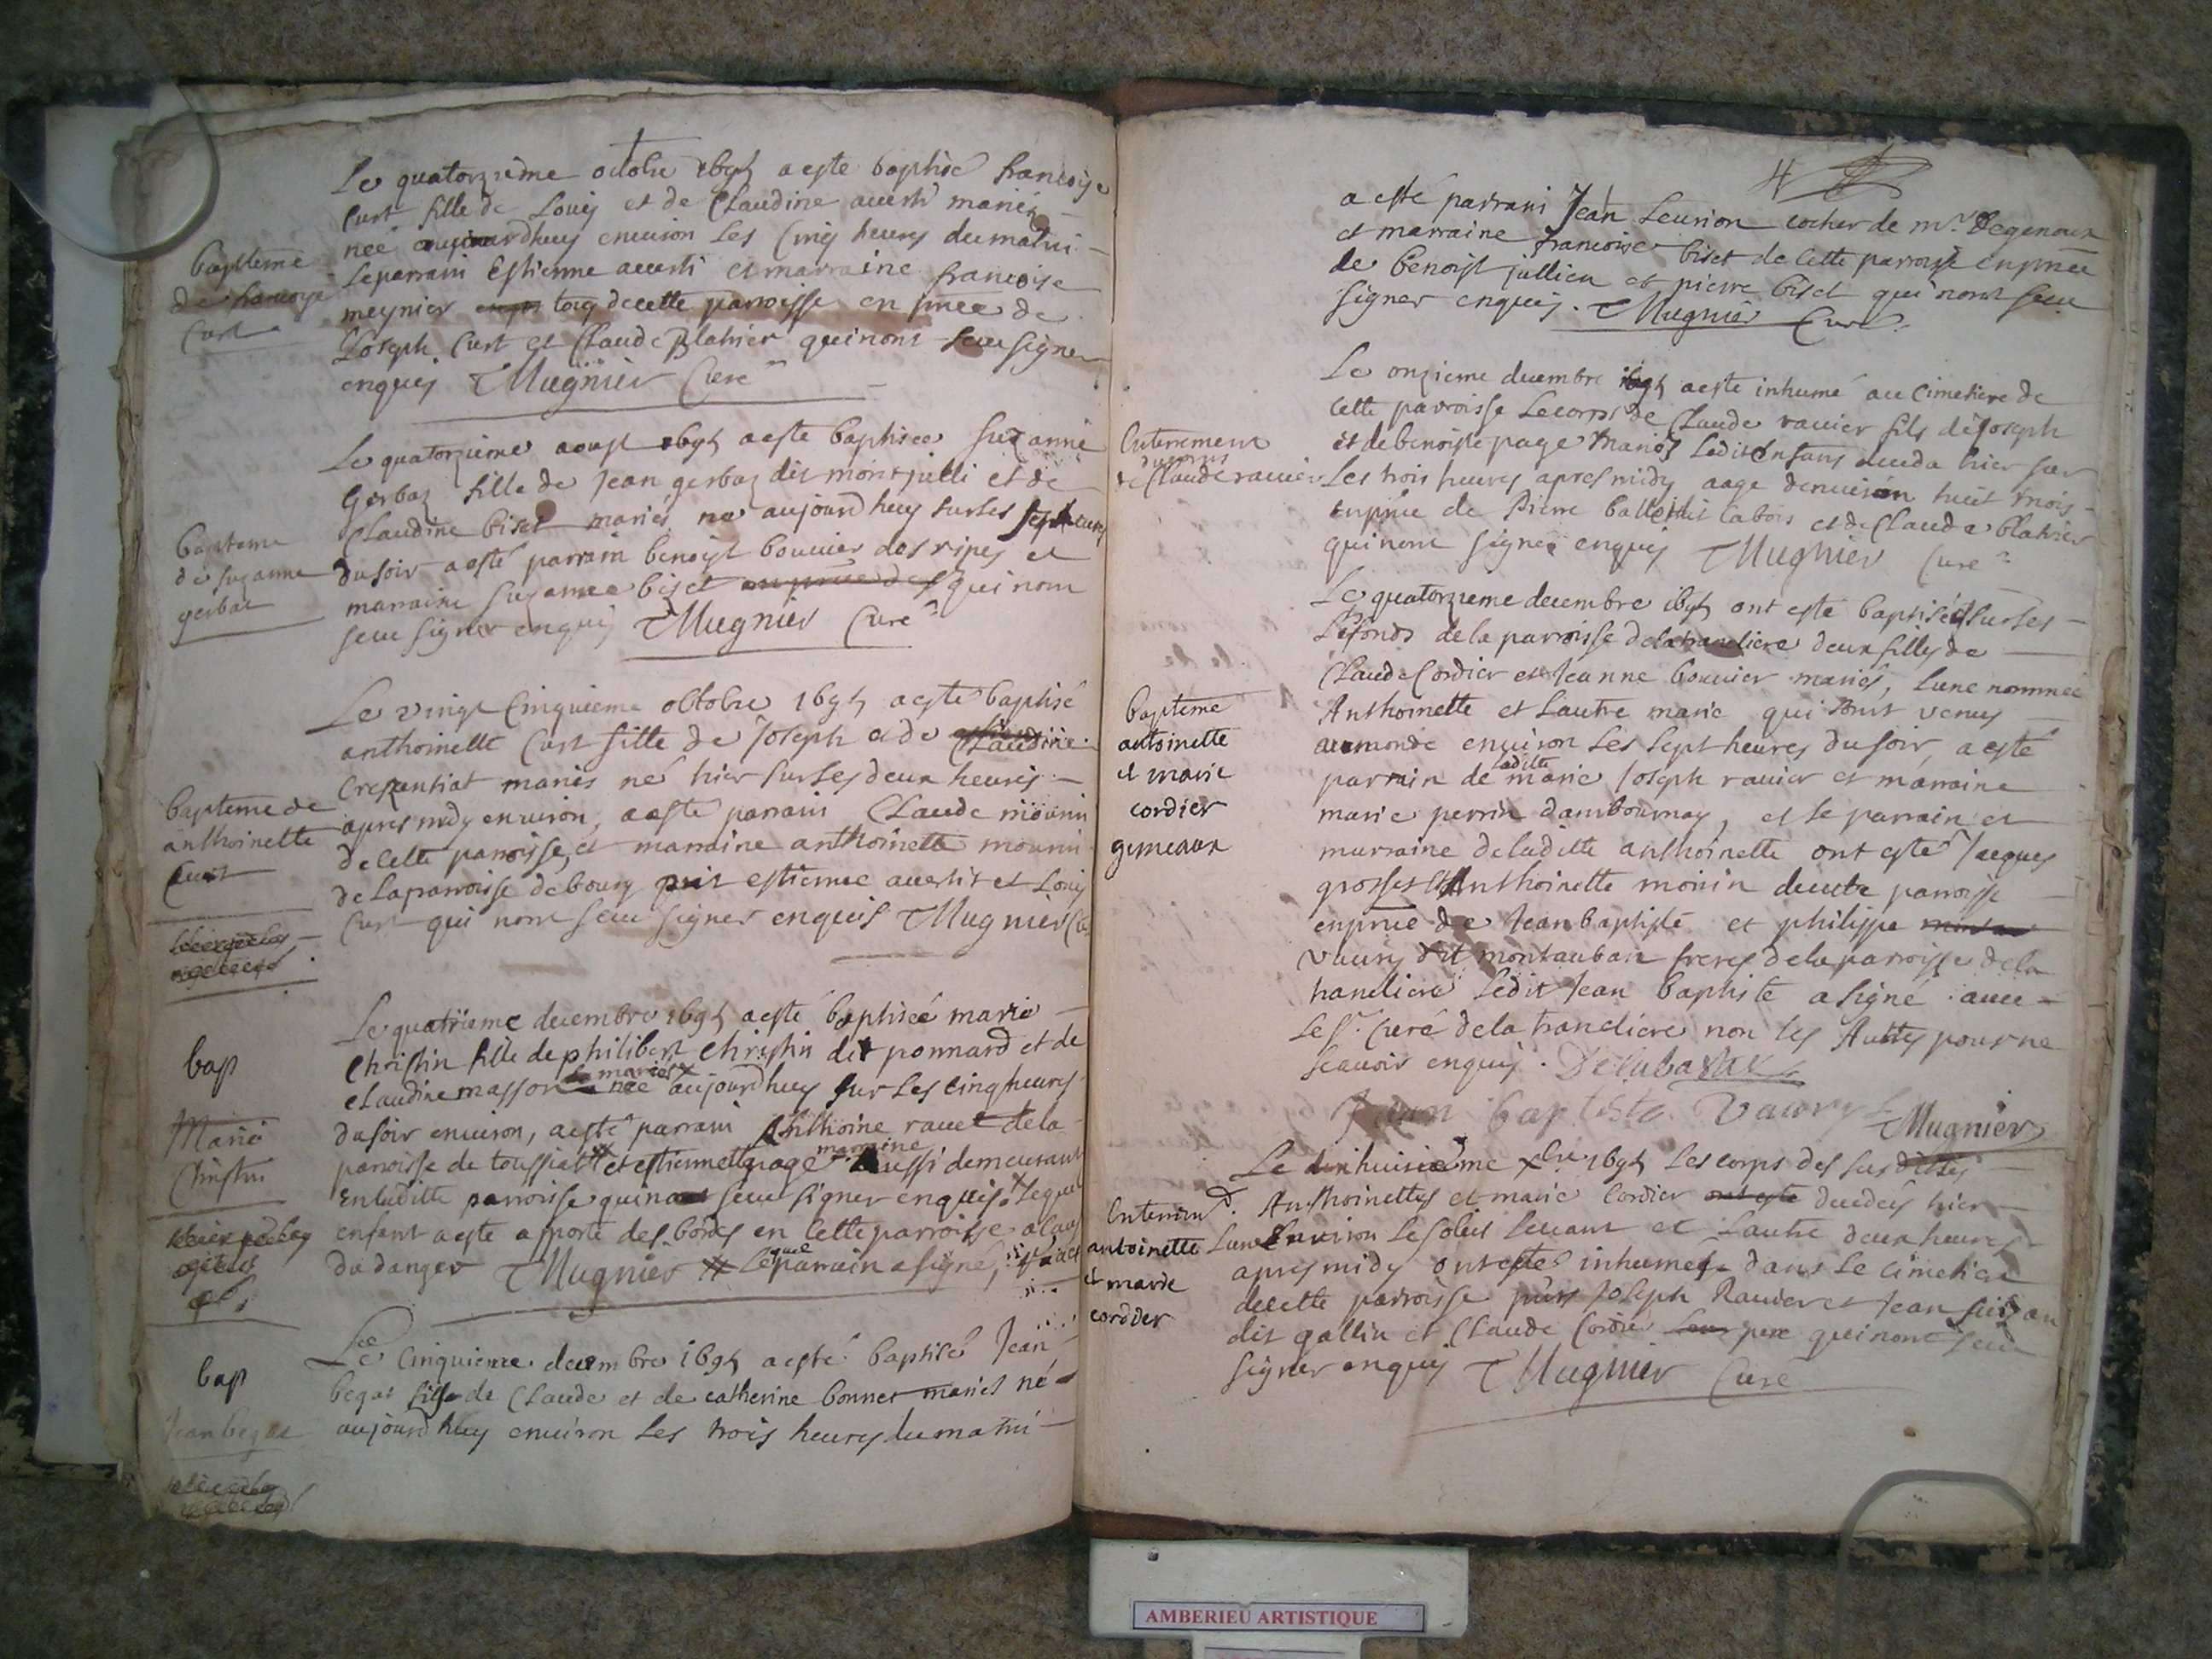 Le quatorzieme octobre 1695 a este baptisé francoise
Curt fille de Louis et de Claudine auerti mariés
neé aujourdhuy enuiron Les Cinq heures du matin
Le parrain Estienne auerti et marraine francoise
meynier tous de cette parroisse en pnce de
Joseph Curt et Claude Blahier qui nont sceu signer
enquis Mugnier Curé
baptême
de francoyse
Curt
Le quatorzieme aoust 1695 a este baptisee suzanne
Gerbaz fille de Jean gerbaz dit mont julli et de
Claudine biset mariés, né aujourdhuy sur les sept heures
du soir a esté parrain benoist bouuier des ripes et
marraine suzanne biset qui nont
sceu signer enquis Mugnier Curé
bapteme
de suzanne
gerbaz
Le vingt Cinquieme octobre 1695 a este baptisé
anthoinette Curt fille de Joseph et de Claudine
mariés né hier sur les deux heures
apres midy enuiron, a esté parrain Claude mounin
de cette parroisse, et marraine anthoinette mounin
de la parroisse de bourg pnt estienne auerti et Louis
Curt qui nont sceu signer enquis Mugnier Cu
bapteme de
anthoinette
Curt
Le quatrieme decembre 1695 a esté baptiseé marie
Christin fille de philibert Christin dit ponnard et de
claudine masson mariés neé aujourdhuy sur les cinq heures
du soir enuiron, a esté parrain Anthoine rauet de la
parroisse de toussiat et estiennette page marraine aussi demeurant
en ladite parroisse qui nont sceu signer enquis. Lequel
enfant a este apporté des bordes en cette parroisse a cause
du danger Mugnier Lequel parrain a signé,
bap
Marie
Christin
Le Cinquieme decembre 1695 a esté baptisé Jean
begat fils de Claude et de catherine bonnet mariés né
aujourdhuy enuiron Les trois heures du matin
bap
Jean begat
4
a esté parrain Jean Leurion cocher de mr. Degenoux
et marraine francoise biset de cette parroisse en pnce
de benoist jullien et pierre biset qui nont sceu
signer enquis. Mugnier Curé
Le onzieme decembre 1695 a este inhumé au Cimetiere de
Cette parroisse Le corps de Claude rauier fils de Joseph
et de benoiste page mariés Ledit Enfans deceda hier sur
Les trois heures apres midy aagé denuiron huit mois
en pnce de Pierre ballet dit labois et de Claude blahier
qui nont signé enquis Mugnier Curé
Enterrement
du corps
de Claude rauier
Le quatorzieme decembre 1695 ont este baptiseés sur les
fonds de la parroisse de la tranclière deux filles de
Claude Cordier et Jeanne bouuier mariés, Lune nommeé
Anthoinette et Lautre marie qui sont venues
au monde enuiron Les sept heures du soir, a esté
parrain de ladite marie Joseph rauier et marraine
marie perrin dambournay, et le parrain et
marraine de ladite anthoinette ont esté Jacques
grosset et Anthoinette monin de cette parroisse
en pnce de Jean baptiste et philippe
Vaury dit montauban freres de la parroisse de la
trancliere Ledit Jean baptiste a signé auec
Le Sr. Curé de la trancliere non les Autres pour ne
scauoir enquis.
Jean baptiste Vaury Mugnier
bapteme
antoinette
et marie
cordier
gemeaux
Le dixhuitieme xbre 1695 Les corps des susdittes
Anthoinettes et marie Cordier decedeés hier
Lune Enuiron Le soleil leuant et Lautre deux heures
apres midy ont estés inhumeés dans Le cimetiere
de cette parroisse pnts Joseph Rauier et Jean
dit gallin et Claude Cordier pere qui nont sceu
signer enquis Mugnier Curé
Enterrem d.
antoinette
et marie
cordier
AMBERIEU ARTISTIQUE